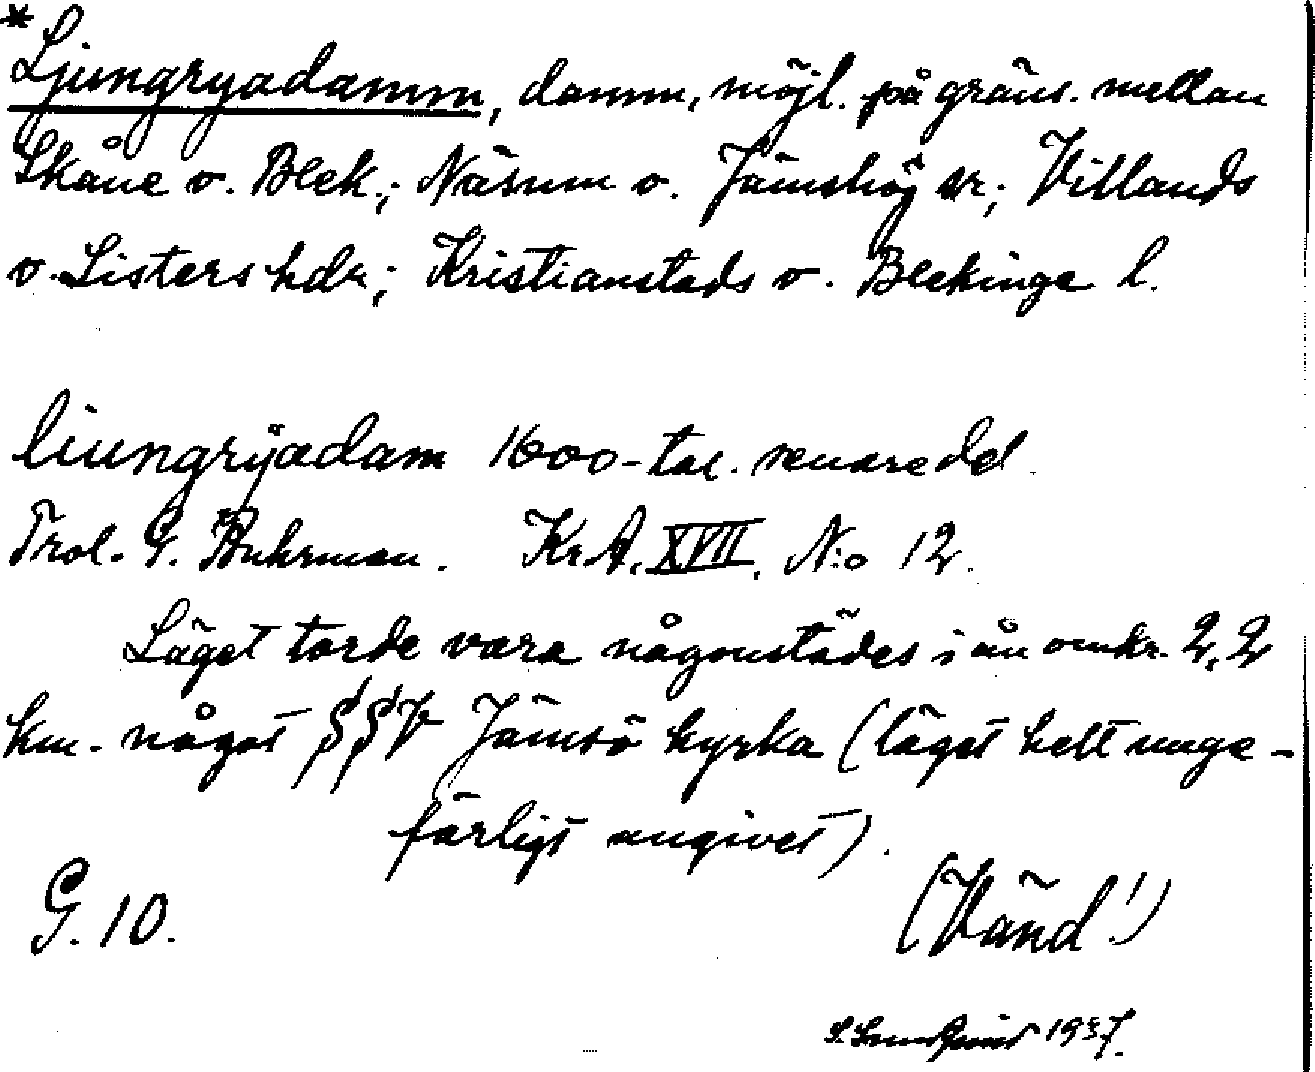 *Ljungryadamm, damm, möjl. på gräns. mellan
Skåne o. Blek.; Näsum o. Jämshög sr; Villands
o. Listers hdr; Kristianstads o. Blekinge l.
liungrÿadam 1600-tal. senare del
Trol. G. Buhrman. KrA. XVII. N:o 12.
Läget torde vara någonstädes i ån omkr. 2,2
km. något SSV Jämsö kyrka (läget helt unge-
färligt angivet).
G. 10. (Vänd!)
1937.